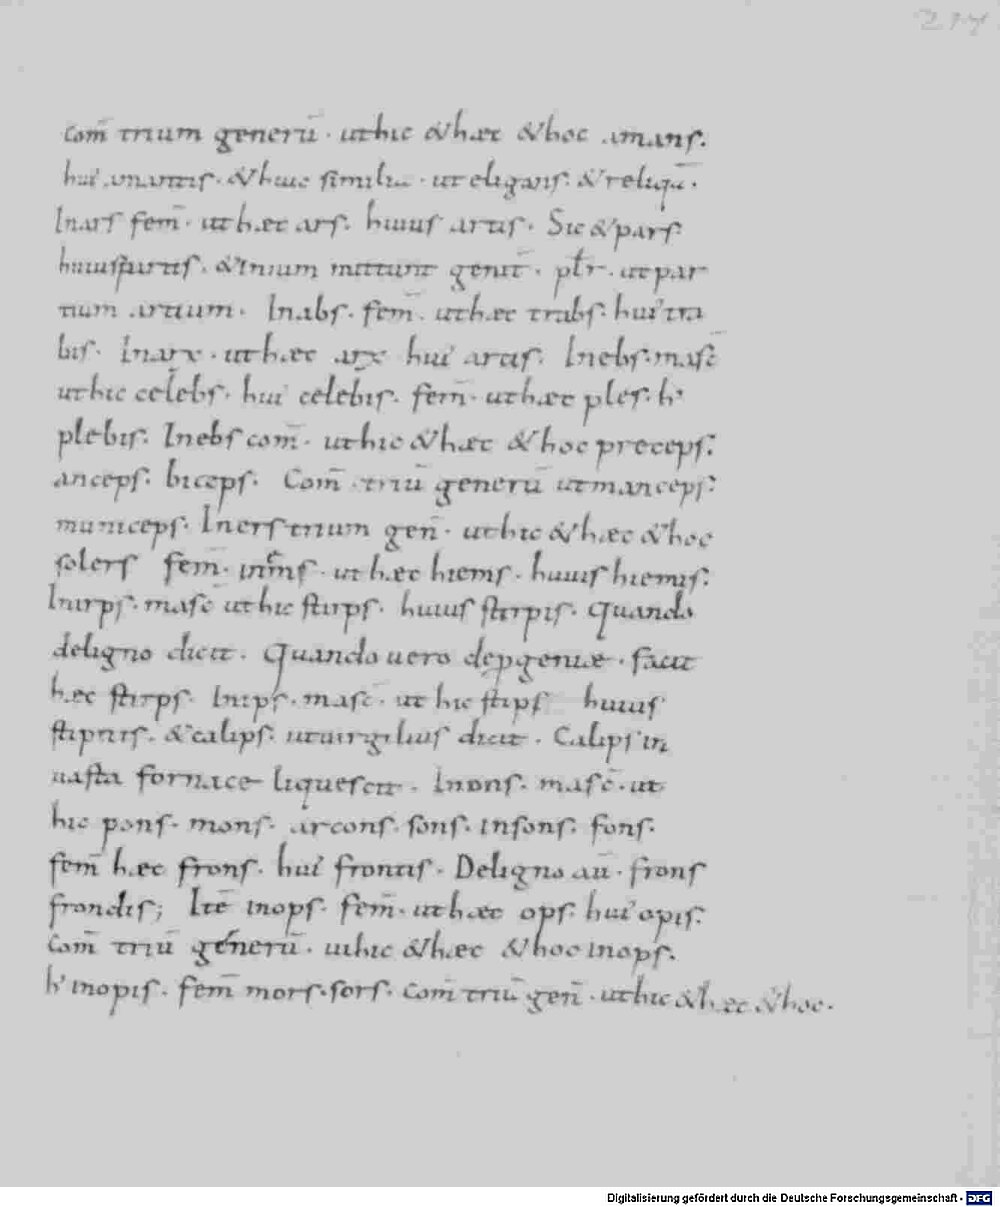 217
com̄ trium generū · ut hic & hæc & hoc amans.
hui' amantis · & huic similia · ut eligans · & reliqua ·
In ars fem̄ · ut hæc ars · huius artis · Sic & pars
huius partis · & In ium mittunt genit̄ · pl̄r · ut par
tium artium · In abs · fem̄ · ut hæc trabs · hui' tra
bis · In arx · ut hæc arx hui' arcis · In ebs · masc̄
ut hic celebs · hui' celebis · fem̄ · ut hæc ples · h'
plebis · In ebs com̄ · ut hic & hæc & hoc preceps ·
anceps · biceps · Com̄ · triū generū ut manceps ·
municeps · In ers trium gen̄ · ut hic & hæc & hoc
solers fem̄ · in ems · ut hæc hiems · huius hiemis ·
In irps · masc̄ ut hic stirps · huius stirpis · Quando
de ligno dicit · Quando uero de pgeniæ · facit
hæc stirps · In ips · masc̄ · ut hic stips huius
stipitis · & calips · ut uirgilius dicit · Calips in
uasta fornace liquescit · In ons · masc̄ · ut
hic pons · mons · arcons · sons · insons · fons ·
fem̄ hæc frons · hui' frontis · De ligno aū · frons
frondis; Itē inops · fem̄ · ut hæc ops · hui' opis ·
Com̄ triū generū · ut hic & hæc & hoc inops ·
h' inopis · fem̄ mors · sors · com̄ triū gen̄ · ut hic & hæc & hoc ·
Digitalisierung gefördert durch die Deutsche Forschungsgemeinschaft - DFG